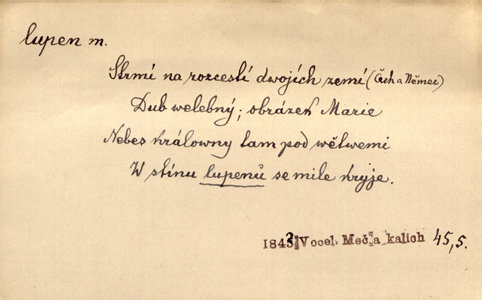 lupen m.
Strmí na rozcestí dwojích zemí (Čech a Němec)
Dub welebný; obrázek Marie
Nebes králowny tam pod wětwemi
W stínu lupenů se mile kryje.
1843 Vocel. Meč a kalich 45,5.